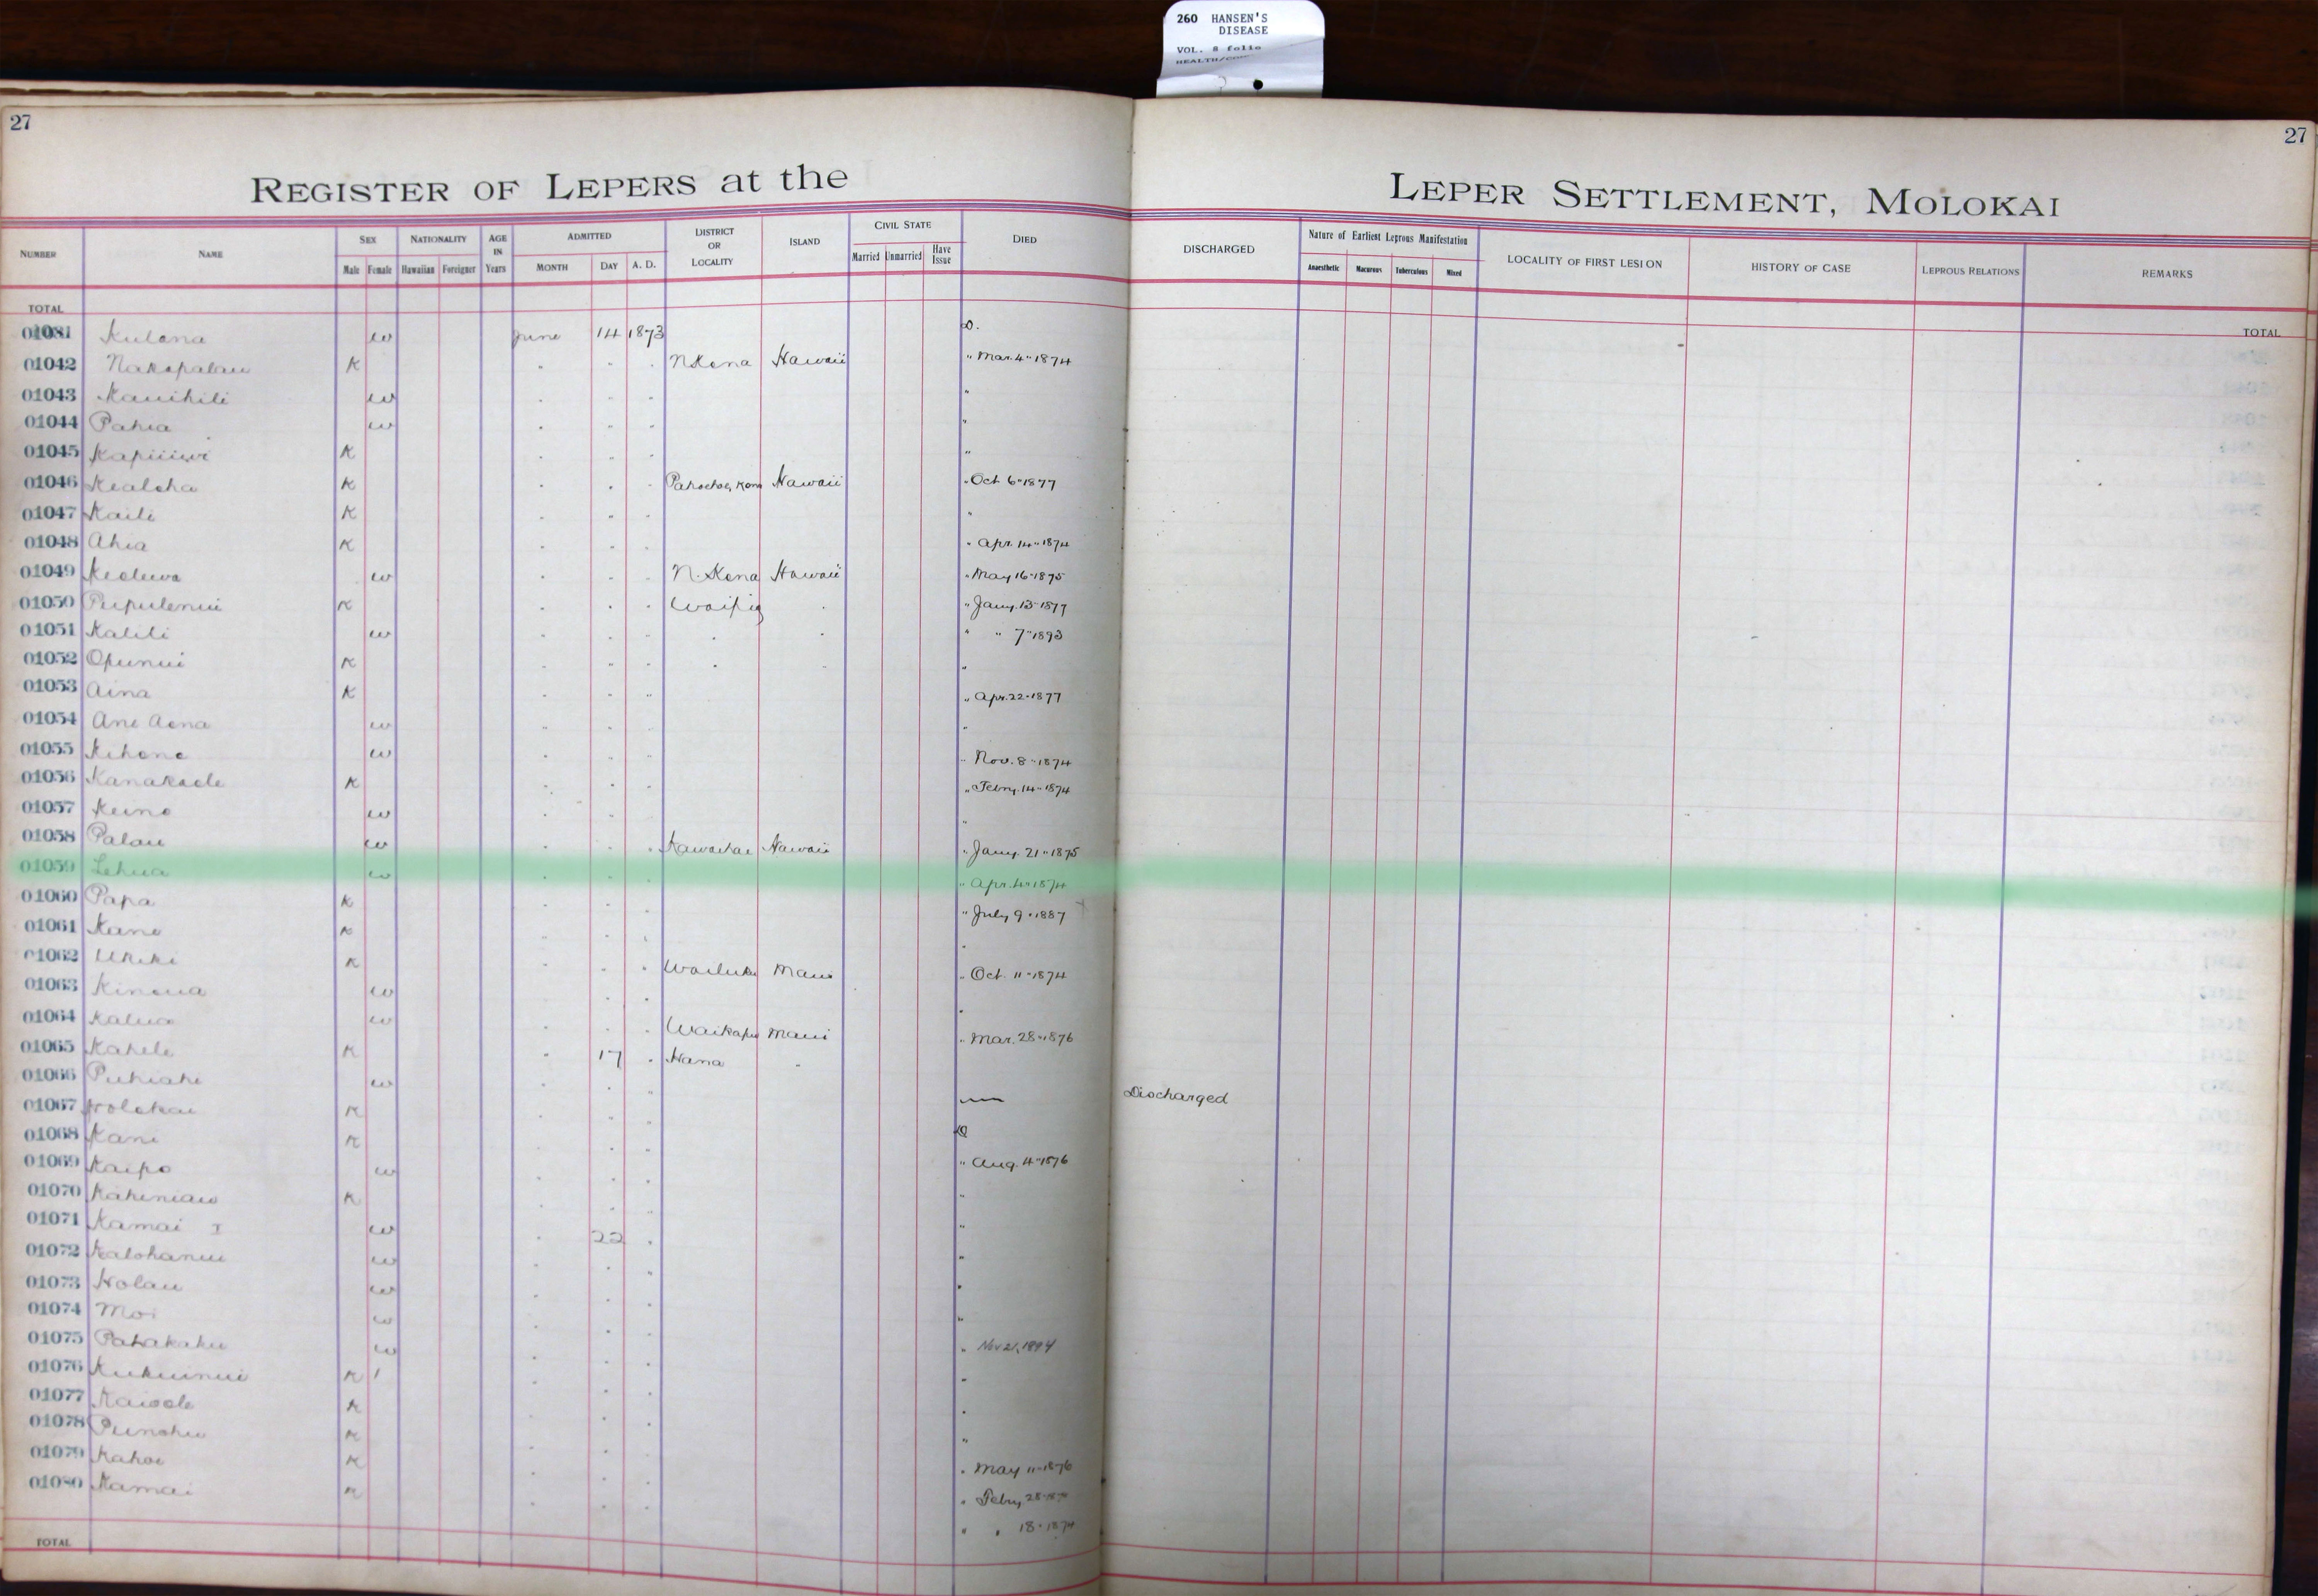 260 HANSEN'S
DISEASE
VOL. 8 folio
27
27
REGISTER OF LEPERS at the
LEPER SETTLEMENT, MOLOKAI
NUMBER NAME SEX NATIONALITY AGE IN Years ADMITTED DISTRICT OR LOCALITY ISLAND CIVIL STATE DIED DISCHARGED Nature of Earliest Leprous Manifestation LOCALITY OF FIRST LESION HISTORY OF CASE LEPROUS RELATIONS REMARKS
Male Female Hawaiian Foreigner MONTH DAY A. D. Married Unmarried Have Issue Anaesthetic Macurous Tuberculous Mixed
TOTAL TOTAL
Kulana w June 14 1873 D.
01042 Nakopalau K " " " N Kona Hawaii " Mar. 4 " 1874
01043 Kauihili w " " " "
01044 Pahia w " " " "
01045 K " " " "
01046 Kealoha K " " " Hawaii " Oct 6 " 1877
01047 Kaili K " " " "
01048 Ahia K " " " " Apr. 14 " 1874
01049 w " " " N. Kona Hawaii " May 16 " 1875
01050 Pupulenui K " " " Waipio " " Jany. 13 " 1877
01051 Kalili w " " " " " " " 7 " 1893
01052 Opunui K " " " " " "
01053 Aina K " " " " Apr. 22 " 1877
01054 Ane Aona w " " " "
01055 Kihene w " " " " Nov. 8 " 1874
01056 Kanakaole K " " " " Febry. 14 " 1874
01057 Keino w " " " "
01058 Palau w " " " Kawaihae Hawaii " Jany. 21 " 1875
01059 Lehua w " " " " Apr. 4 " 1874
01060 Papa K " " " " July 9 " 1887
01061 Kane K " " " "
01062 Ukiki K " " " Wailuku Maui " Oct. 11 " 1874
01063 Kinoua w " " " "
01064 Kalua w " " " Waikapu Maui " Mar. 28 " 1876
01065 Kahele K " 17 " Hana "
01066 Puhiahi w " " " Discharged
01067 Holokai K " " " D
01068 Kani K " " " " Aug. 4 " 1876
01069 Kaipo w " " " "
01070 Kahiniau K " " " "
01071 Kamai I w " 22 " "
01072 Kalohanui w " " " "
01073 Holau w " " " "
01074 Moi w " " " " Nov 21, 1894
01075 Pahakaku w " " " "
01076 Kukuinui K " " " "
01077 Kaiaole K " " " "
01078 Punohu K " " " " May 11 " 1876
01079 Kahoe K " " " " Febry 28
01080 Kamai K " " " " " 18 " 1874
TOTAL